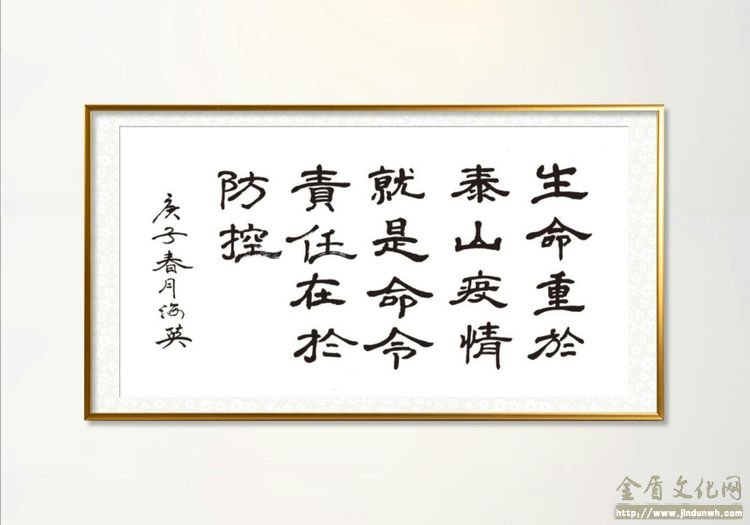 生命重於
泰山疫情
就是命令
責任在於
防控
庚子春月海英
金盾文化网
http://www.jindunwh.com